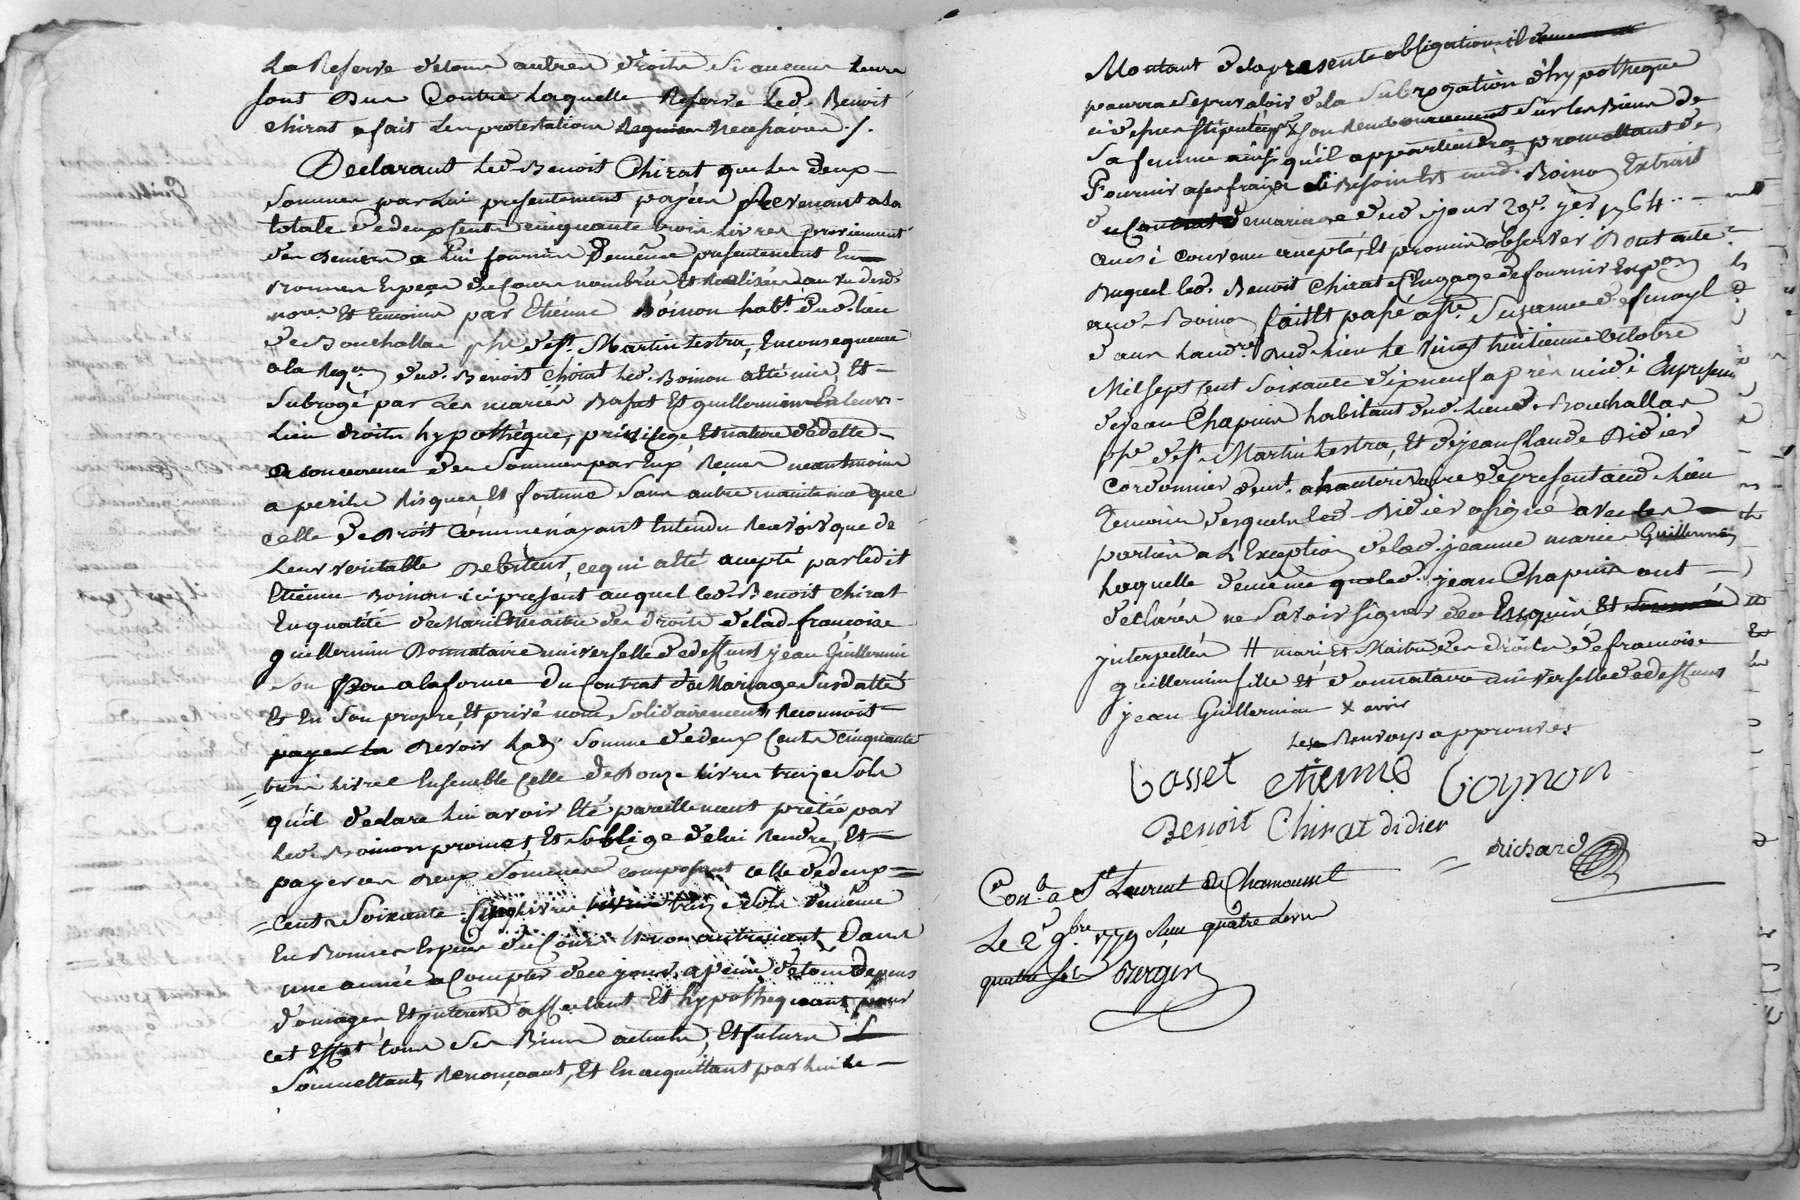 La Reserve de tous autres droits si aucuns leurs
sont dus Contre laquelle Reserve led. Benoit
chirat a fait des protestations Requises necessaires ./.
Declarant led Benoit Chirat que les deux
sommes par lui presentement payées Revenant a la
totale de deux cents cinquante trois livres proviennent
des deniers a lui fournis de même presentement En
bonnes Especes de Cours nombrées Et realisées au vu desd.
nore. Et temoins par Etienne Boinon habt. dud. lieu
de Bouchallas psse de st. Martin lestra, En consequence
a la Reqon dud. Benoit Chirat led. Boinon a été mis, Et
subrogé par les mariés Basset Et guillermin En leurs
lieu droits hypothèque, privilege, Et nature de dette
a concurence des sommes par Eux Reçues neantmoins
a perils Risques Et fortune sans autre maintenue que
celle de droit Comme n'ayant Entendu Recevoir que de
leur veritable debiteur, ce qui a été accepté par ledit
Etienne Boinon ici present auquel led Benoit Chirat
En qualité de Mari Et Maitre des droits de lad françoise
guillermin Donnataire universelle de deffunt jean Guillermin
son Pere a la forme du Contrat de Mariage susdatté
Et En son propre, Et privé nom solidairement Reconnoit
devoir lad. somme de deux Cents cinquante
trois livres Ensemble Celle de Douze livres treize sols
qu'il declare lui avoir été pareillement pretée par
led. Boinon promet, Et s'oblige de lui Rendre, Et
payer ces deux sommes composant celle de deux
cents soixante Cinq livres treize sols de même
En bonnes Especes de Cours Et non autrement, Dans
une année a Compter de ce jour, a peine de tous depens
domages Et interets affectant Et hypothequant pour
cet Effet tous ses Biens actuels, Et futurs
soumettant, Renonçant, Et En acquittant par lui le
Montant de la presente obligation il
pourra se prevaloir de la subrogation d'hypotheque
ci dessus stipulée pr X son Remboursement sur les Biens de
sa femme ainsi qu'il appartiendra promettant de
Fournir a ses fraix si Besoin Est aud. Boinon Extrait
du Contrat de mariage dud. jour 29e. 7bre 1764
ainsi convenu accepté, Et promis observer Dont acte
Duquel led. Benoit Chirat s'Engage de fournir Expon
aud. Boinon fait Et passé a ste. Suzanne
dud. lieu le vingt huitieme octobre
Mil sept cent soixante dix neuf après midi En presence
de jean Chapuis habitant dud. lieu de Bouchallas
psse de st. Martin lestra, Et de jean Claude Didier
cordonnier de present aud. lieu
Temoins desquels led Didier a signé avec les
parties a l'Exception de lad. jeanne marie Guillermin
Laquelle de même que led. jean Chapuis ont
déclarés ne savoir signer de ce Enquis Et
jnterpellés # mari Et Maitre des droits de francoise
guillermin fille Et donnataire universelle de deffunt
jean Guillermin X avoir
les Renvoys approuvés
Basset etienne Boynon
Benoit Chirat didier
Richard
Conlé a St Laurent de Chamousset
Le 2e 9bre 1779 Reçu quatre livres
quatre sols Burgin